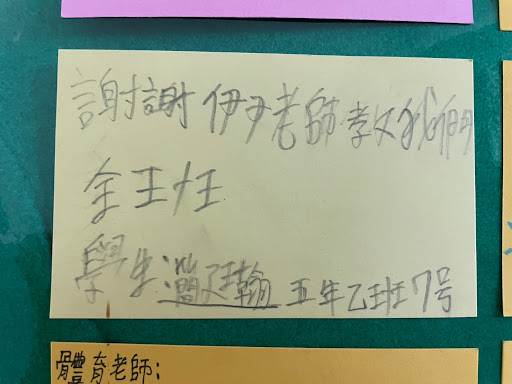 謝謝伊尹老師教我們
全王任
學生:瀾廷翰 五年乙班7号
體育老師: